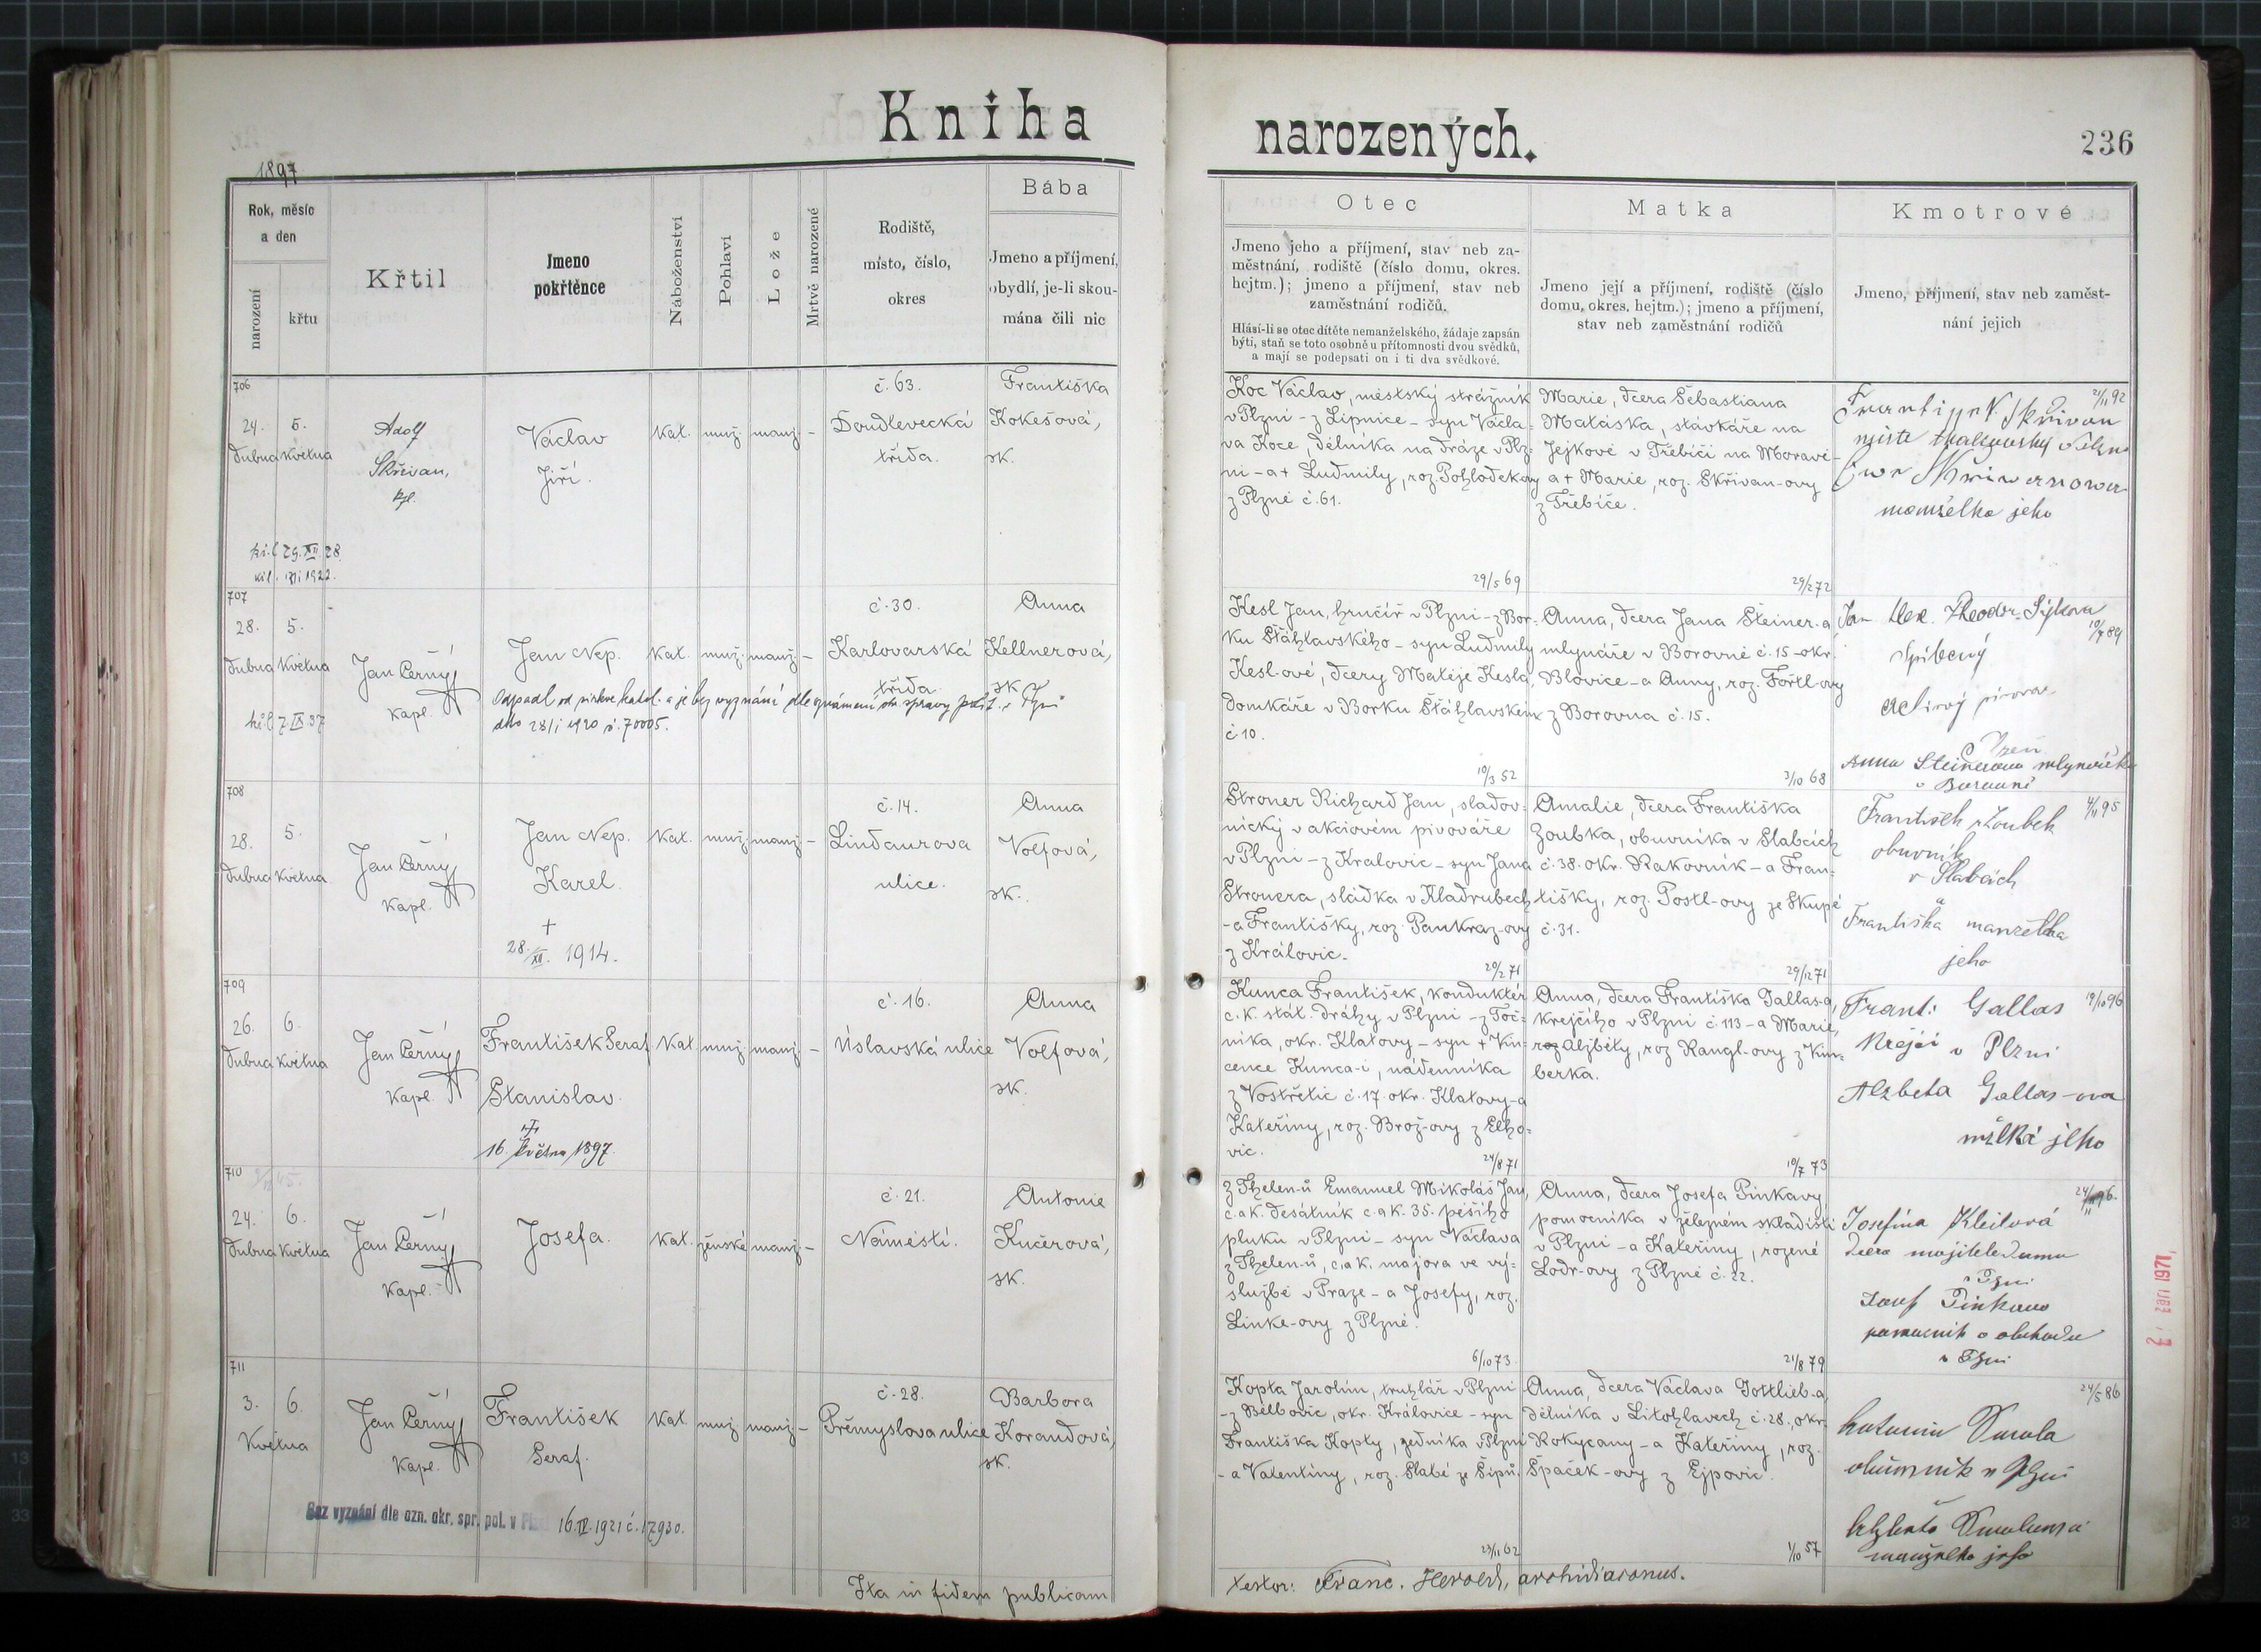 Kniha
narozených.
236
1897
Rok, měsíc
a den
narození
křtu
Křtil
Jmeno
pokřtěnce
Náboženství
Pohlaví
Lože
Mrtvě narozené
Rodiště,
místo, číslo,
okres
Bába
Jmeno a příjmení,
obydlí, je-li skou-
mána čili nic
Otec
Jmeno jeho a příjmení, stav neb za-
městnání, rodiště (číslo domu, okres.
hejtm.); jmeno a příjmení, stav neb
zaměstnání rodičů.
Hlásí-li se otec dítěte nemanželského, žádaje zapsán
býti, staň se toto osobně u přítomnosti dvou svědků,
a mají se podepsati on i ti dva svědkové.
Matka
Jmeno její a příjmení, rodiště (číslo
domu, okres. hejtm.); jmeno a příjmení,
stav neb zaměstnání rodičů
Kmotrové
Jmeno, příjmení, stav neb zaměst-
nání jejich
706
24.
dubna
5.
května
Adolf
Skřivan,
kpl.
Václav
Jiří.
kat.
muž.
manž.
–
č. 63.
Doudlevecká
třída.
Františka
Kokešová,
zk.
29. XII 28
1922.
Koc Václav, městský strážník
v Plzni - z Lipnice - syn Václa-
va Koce, dělníka na dráze v Plz-
ni - a + Ludmily, roz. Pohlodekovy
z Plzně č. 61.
29/5 69
Marie, dcera Šebastiana
Mataska, stávkáře na
Jejkově v Třebíči na Moravě -
a + Marie, roz. Skřivan-ovy
z Třebíče.
29/2 72
21/11 92
manželka jeho
707
28.
dubna
5.
května
Jan Černý
kapl.
Jan Nep.
kat.
muž.
manž.
–
č. 30.
Karlovarská
třída.
Anna
Kellnerová,
zk.
Odpadl od církve katol. a je bez vyznání dle oznámení okr. správy polit. v Plzni
dto 28/1 1920 č. 70005.
7. IX 37
Kesl Jan, hrnčíř v Plzni - z Bor-
ku Šťáhlavského - syn Ludmily
Kesl-ové, dcery Matěje Kesla,
domkáře v Borku Šťáhlavském
č 10.
10/3 52
Anna, dcera Jana Steiner-a
mlynáře v Borovně č. 15 - okr.
Blovice - a Anny, roz. Fořtl-ovy
z Borovna č. 15.
3/10 68
10/7 89
Plzeň
Anna Steinerova mlynářka
v Borovně
708
28.
dubna
5.
května
Jan Černý
kapl.
Jan Nep.
Karel.
+
28./XII. 1914.
kat.
muž.
manž.
–
č. 14.
Lindaurova
ulice.
Anna
Volfová,
zk.
Stroner Richard Jan, sladov-
nický v akciovém pivováře
v Plzni - z Kralovic - syn Jana
Stronera, sládka v Kladrubech
- a Františky, roz. Pankraz-ovy
z Královic.
20/2 71
Amalie, dcera Františka
Zoubka, obuvníka v Slabcích
č. 38. okr. Rakovník - a Fran-
tišky, roz. Postl-ovy ze Skupé
č. 31.
29/12 71
4/11 95
František Zoubek
obuvník
v Slabcích
Františka manželka
jeho
709
26.
dubna
6.
května
Jan Černý
kapl.
František Seraf.
Stanislav.
+
16. května 1897.
kat.
muž.
manž.
–
č. 16.
Úslavská ulice
Anna
Volfová,
zk.
Kunca František, konduktér
c. k. stát. dráhy v Plzni - z Toč-
níka, okr. Klatovy - syn + Vin-
cence Kunca-i, nádenníka
z Vostřetic č. 17. okr. Klatovy - a
Kateřiny, roz. Brož-ovy z Elho-
vic.
24/8 71
Anna, dcera Františka Gallas-a,
krejčího v Plzni č. 113 - a Marie,
Alžběty, roz. Rangl-ovy z Vim-
berka.
10/7 73
19/10 96
Frant. Gallas
Krejčí v Plzni
Alzbeta Gallas-ova
mželká jeho
710
24.
dubna
6.
května
Jan Černý
kapl.
Josefa.
kat.
ženské
manž.
–
č. 21.
Náměstí.
Antonie
Kučerová,
zk.
z Thelen-ů Emanuel Mikoláš Jan,
c. a k. desátník c. a k. 35. pěšího
pluku v Plzni - syn Václava
z Thelen-ů, c. a k. majora ve vý-
službě v Praze - a Josefy, roz.
Linke-ovy z Plzně.
6/10 73
Anna, dcera Josefa Pinkavy
pomocníka v železném skladišti
v Plzni - a Kateřiny, rozené
Lodr-ovy z Plzně č. 22.
21/8 79
24/11 96.
Josefina Kleitová
dcera majitele domu
v Plzni
Josef Pinkava
pomocník v obchodu
v Plzni
711
3.
května
6.
Jan Černý
kapl.
František
Seraf.
kat.
muž.
manž.
–
č. 28.
Přemyslova ulice
Barbora
Korandová,
zk.
Bez vyznání dle ozn. okr. spr. pol. v Pl 16. II. 1921 č. 17930.
Kopta Jarolím, truhlář v Plzni
- z Bělbovic, okr. Královice - syn
Františka Kopty, zedníka v Plzni
- a Valentiny, roz. Slabé ze Šípů.
23/11 62
Anna, dcera Václava Gottlieb-a,
dělníka v Litohlavech č. 28., okr.
Rokycany - a Kateřiny, roz.
Špaček-ovy z Ejpovic.
1/10 57
24/5 86
Antonín Smola
v Plzni
manželka jeho
Ita in fidem publicam
testor: Franc. Herold, archidiaconus.
září 1971